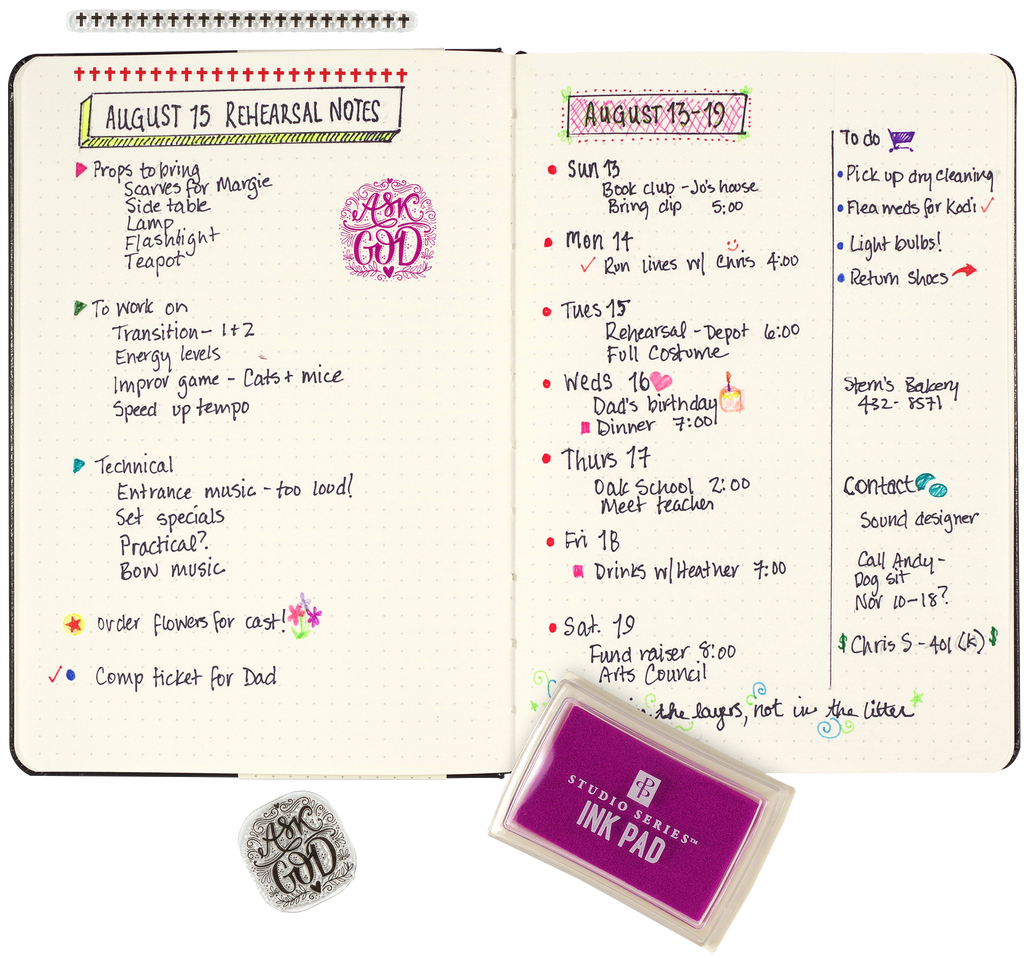 AUGUST 15 REHEARSAL NOTES
Props to bring
Scarves for Margie
Side table
Lamp
Flashlight
Teapot
ASK
GOD
To work on
Transition - 1+2
Energy levels
Improv game - Cats + mice
Speed up tempo
Technical
Entrance music - too loud!
Set specials
Practical?
Bow music
order flowers for cast!
Comp ticket for Dad
AUGUST 13-19
Sun 13
Book club - Jo's house
Bring dip 5:00
Mon 14
Run lines w/ Chris 4:00
Tues 15
Rehearsal - Depot 6:00
Full Costume
Weds 16
Dad's birthday
Dinner 7:00
Thurs 17
Oak School 2:00
Meet teacher
Fri 18
Drinks w/Heather 7:00
Sat. 19
Fund raiser 8:00
Arts Council
in the layers, not in the litter
To do
Pick up dry cleaning
Flea meds for Kodi
Light bulbs!
Return shoes
Stern's Bakery
432-8571
Contact
Sound designer
Call Andy-
Dog sit
Nov 10-18?
$ Chris S - 401 (k) $
ASK
GOD
STUDIO SERIES™
INK PAD